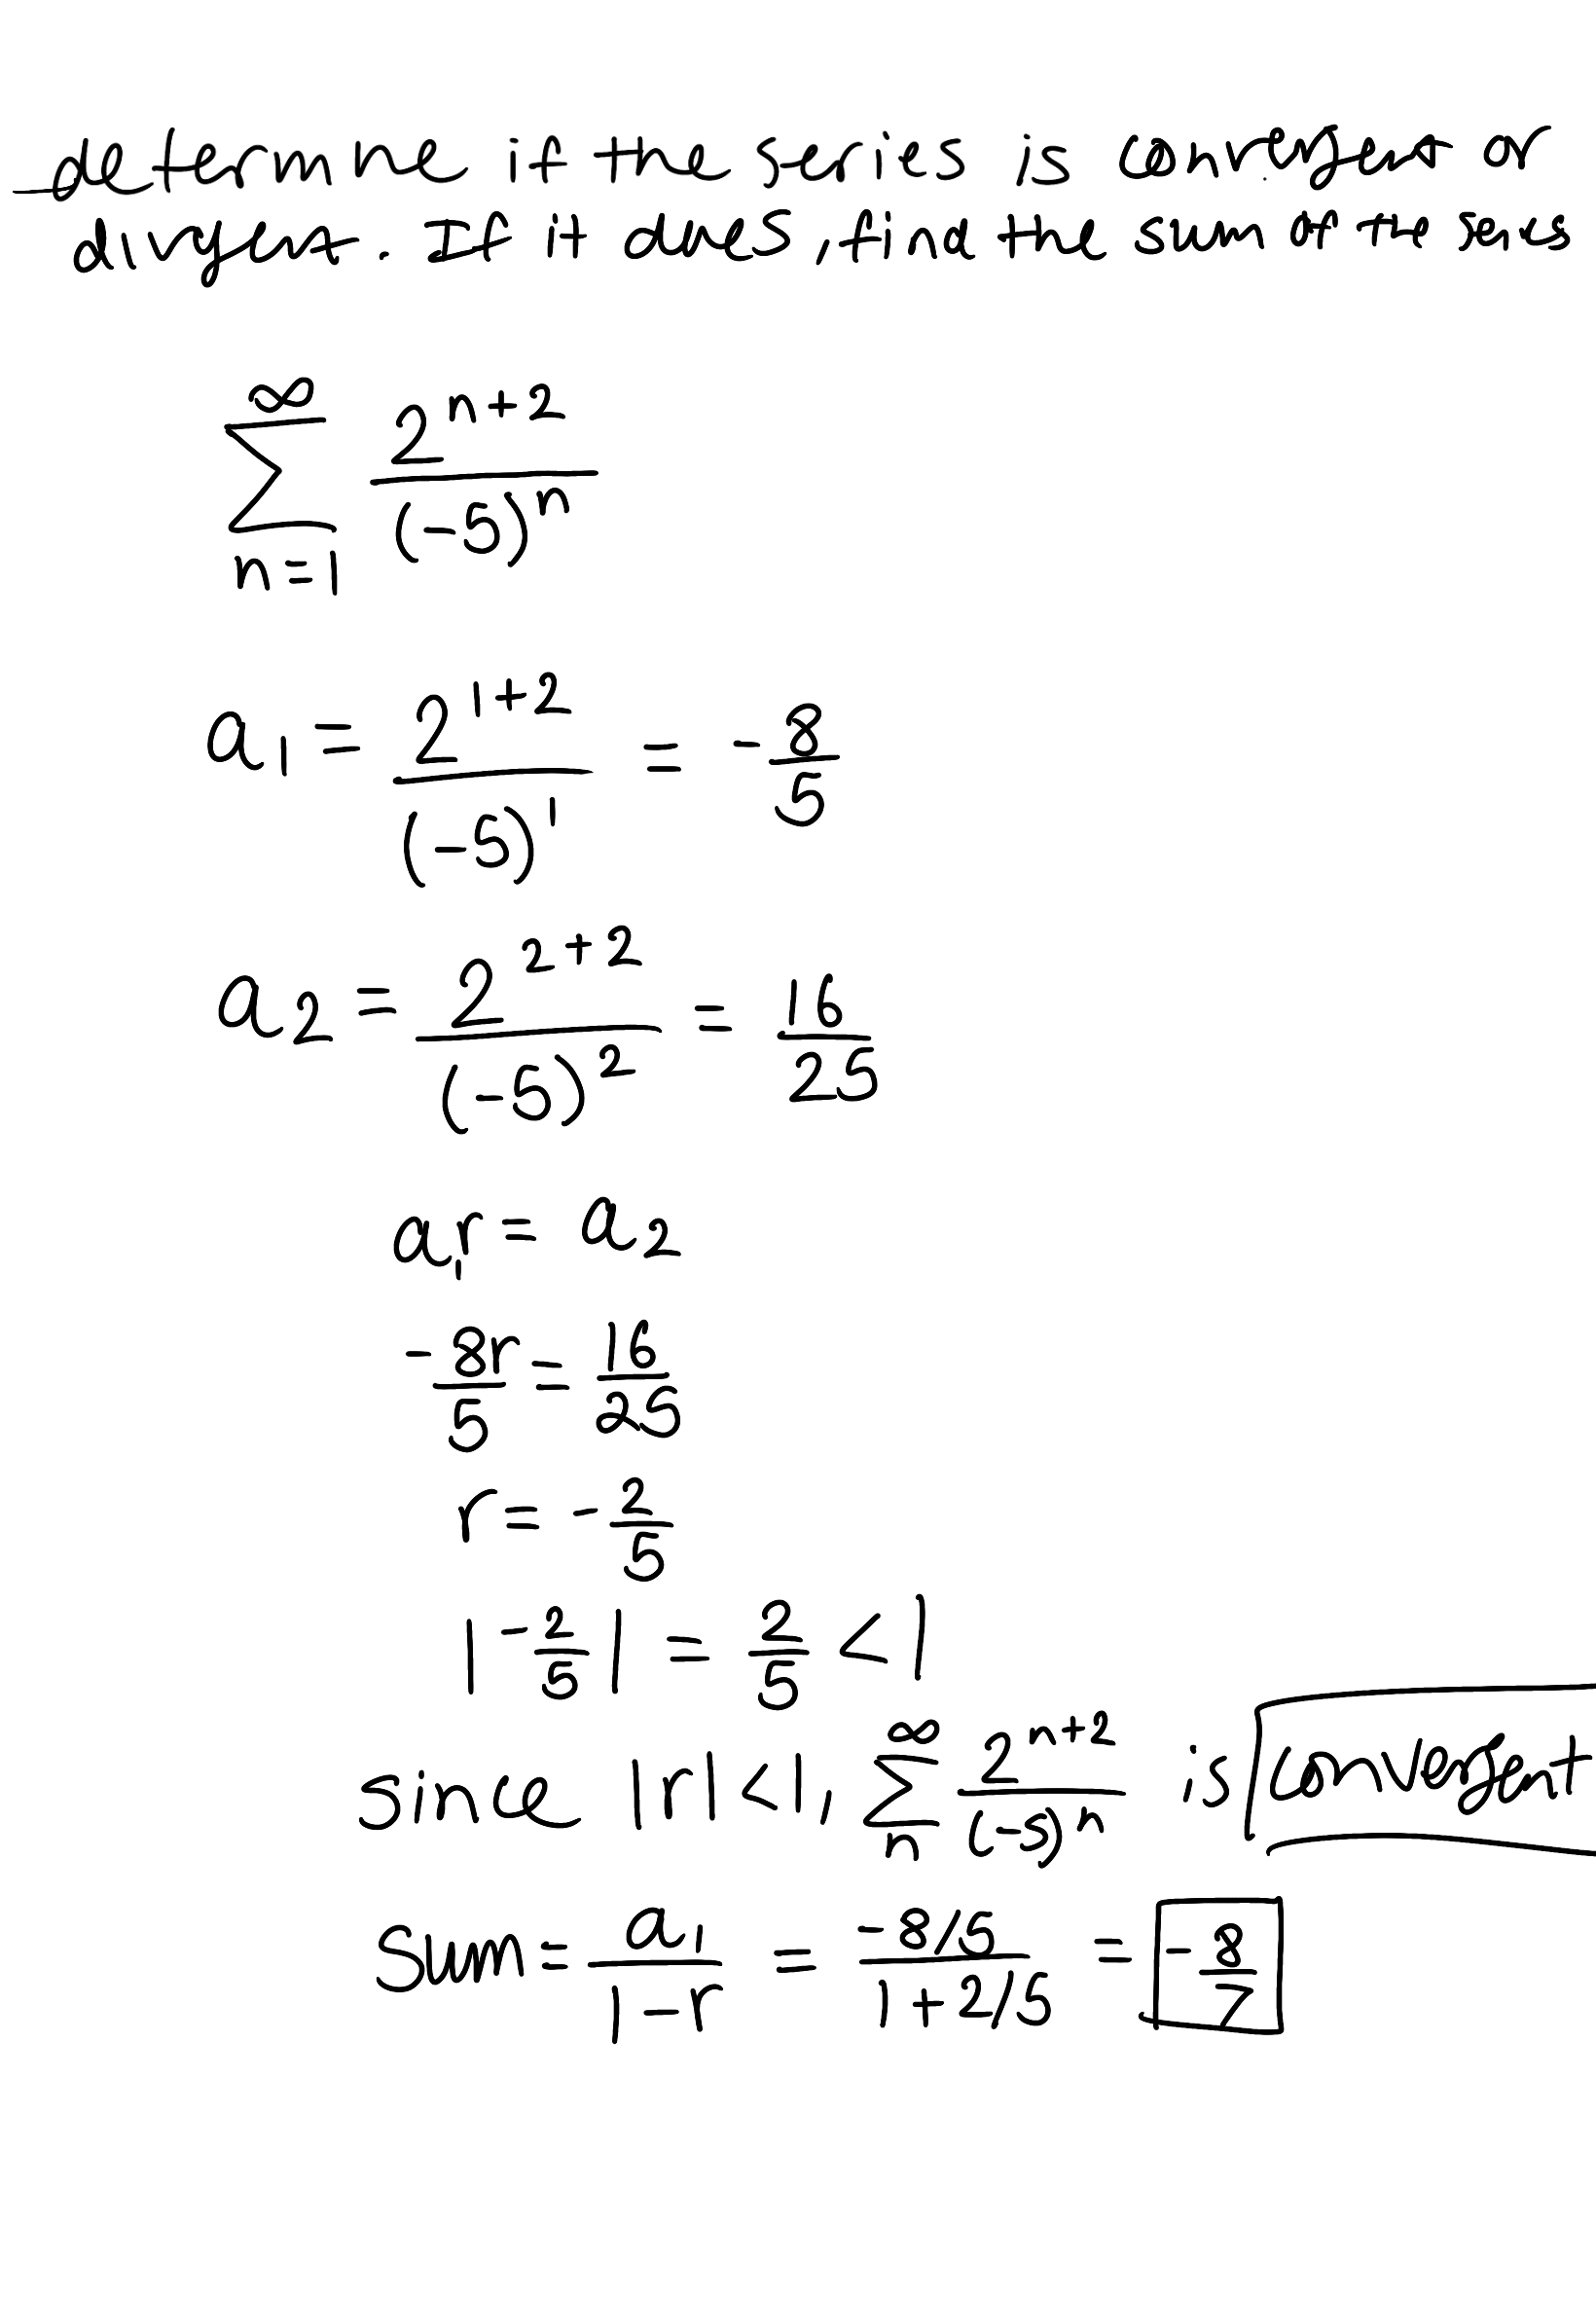 determine if the series is convergent or
divergent. If it does, find the sum of the series
∞
∑ 2^(n+2) / (-5)^n
n=1
a₁ = 2^(1+2) / (-5)^1 = -8/5
a₂ = 2^(2+2) / (-5)^2 = 16/25
a₁r = a₂
-8r/5 = 16/25
r = -2/5
|-2/5| = 2/5 < 1
since |r| < 1, ∑_n^∞ 2^(n+2) / (-5)^n is convergent
sum = a₁ / 1-r = -8/5 / 1+2/5 = -8/7